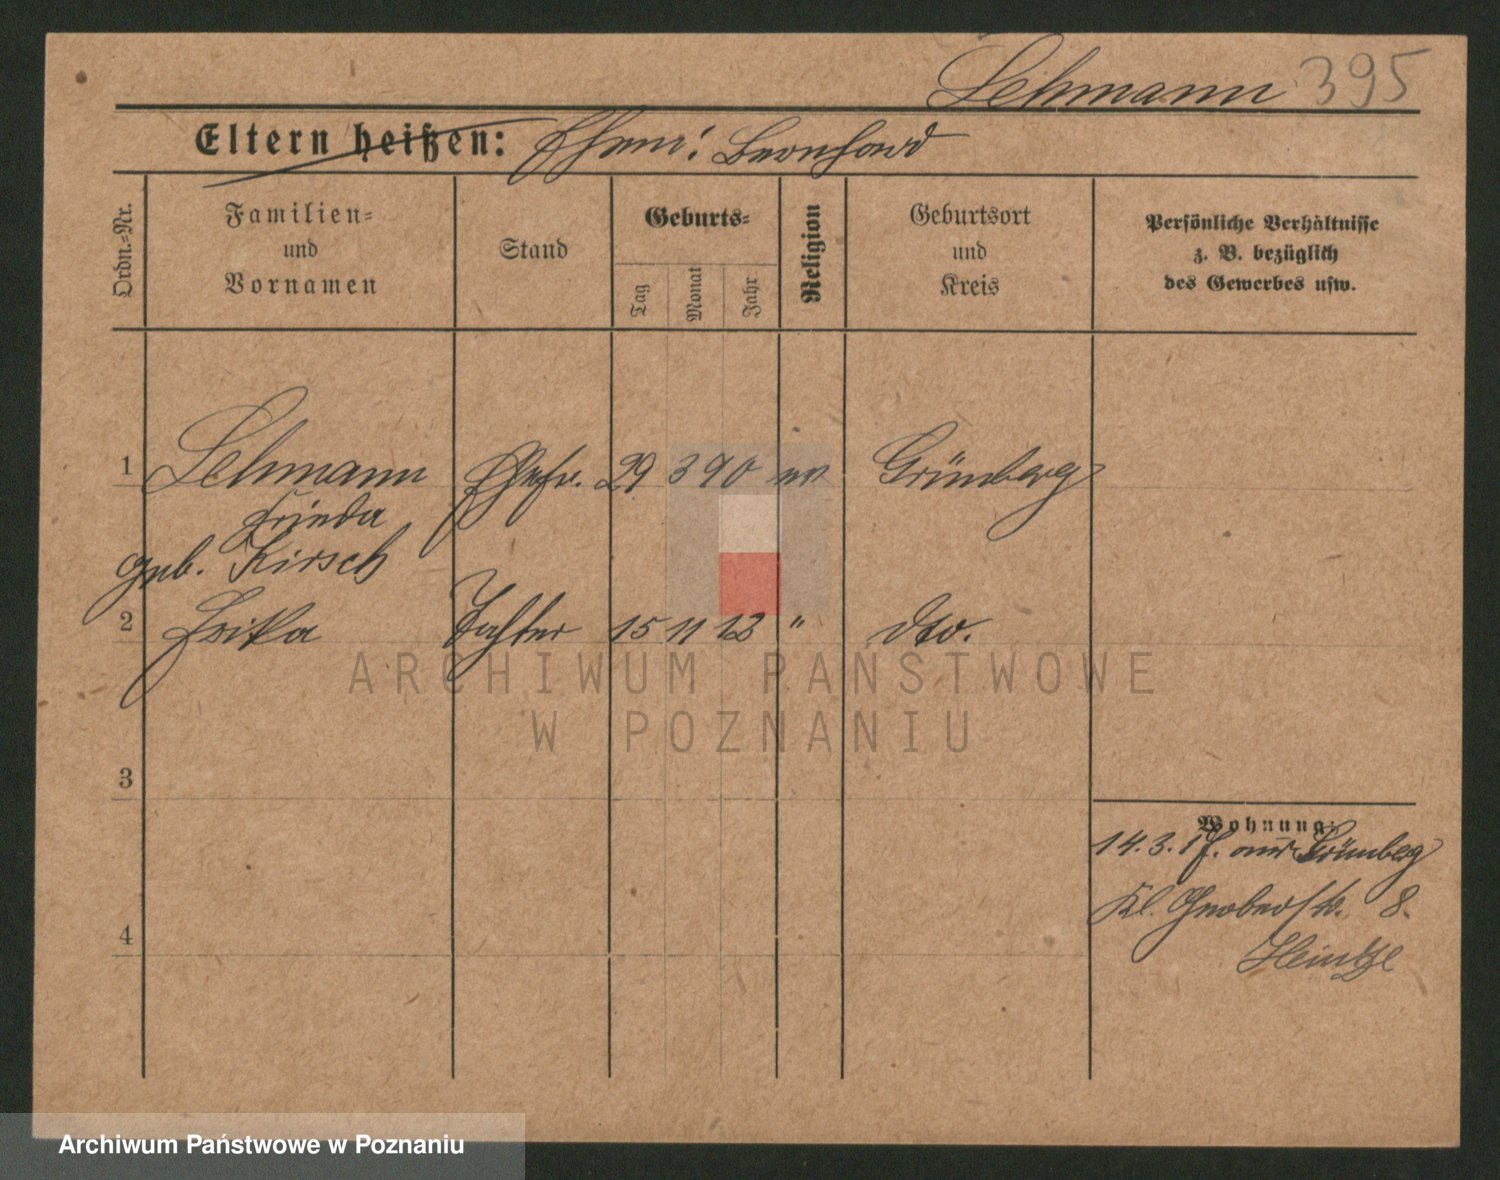 Lehmann 395
Eltern heißen: Ehem: Bernhard
Ordn.=Nr.
Familien=
und
Vornamen
Stand
Geburts=
Tag
Monat
Jahr
Religion
Geburtsort
und
Kreis
Persönliche Verhältnisse
z. B. bezüglich
des Gewerbes usw.
1 Lehmann Ehefr. 29 3 90 ev Grünberg
Frieda
geb. Kirsch
2 Erika Tochter 15 11 12 " dto.
3
Wohnung:
14. 3. 17. aus Grünberg
Kl. Gerberstr. 8.
Heintze
4
ARCHIWUM PAŃSTWOWE
W POZNANIU
Archiwum Państwowe w Poznaniu